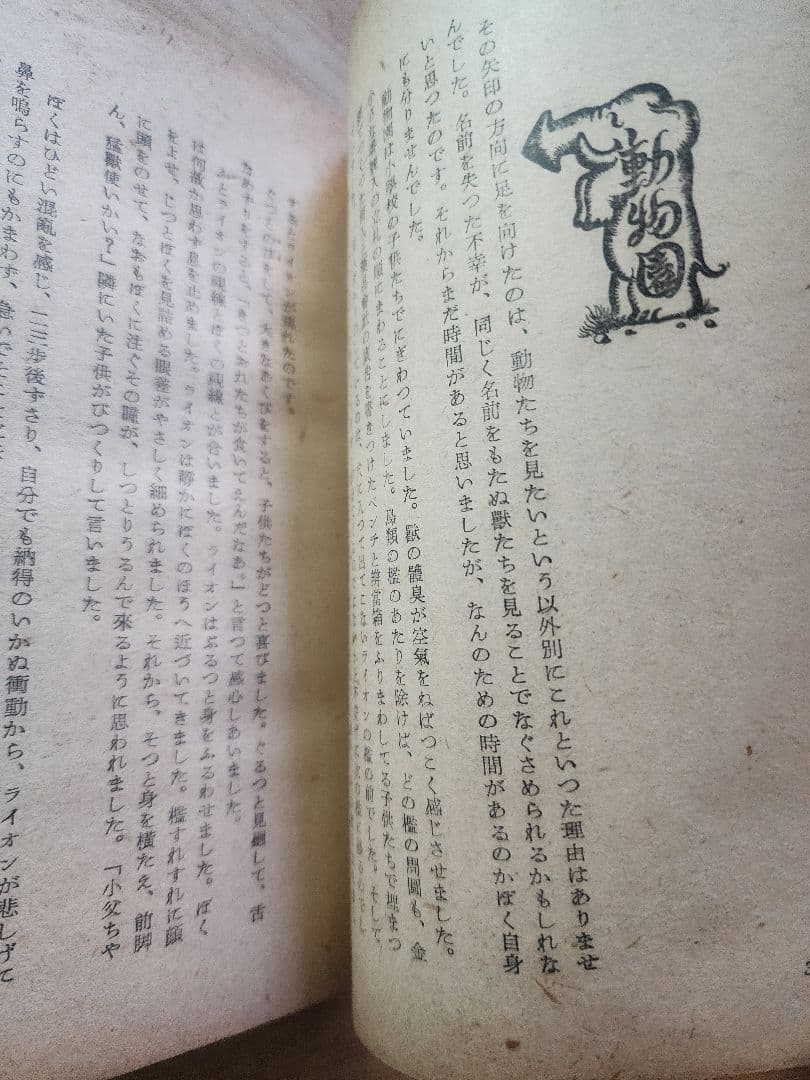 動物園
その矢印の方向に足を向けたのは、動物たちを見たいという以外別にこれといつた理由はありませ
んでした。名前を失つた不幸が、同じく名前をもたぬ獸たちを見ることでなぐさめられるかもしれな
いと思つたのです。それからまだ時間があると思いましたが、なんのための時間があるのかぼく自身
にも分りませんでした。
動物園は小學校の子供たちでにぎわつていました。獸の體臭が空氣をねばつこく感じさせました。
にまわることにしました。鳥類の檻のあたりを除けば、どの檻の周圍も、金
を書きつけたベンチと辨當箱をふりまわしてる子供たちで埋まつ
出てこないライオンの檻の前でした。そして
ライオンが現れたのです。
をして、大きなあくびをすると、子供たちがどつと喜びました。ぐるつと見廻して、舌
なめずりをすると、「きつとおれたちが食いてえんだなあ。」と言つて感心しあいました。
ふとライオンの視線とぼくの視線とが合いました。ライオンはぶるつと身をふるわせました。ぼく
は何故か思わず息を止めました。ライオンは靜かにぼくのほうへ近づいてきました。檻すれすれに顏
をよせ、じつとぼくを見詰める眼差がやさしく細められました。それから、そつと身を橫たえ、前脚
に頭をのせて、なおもぼくに注ぐその瞳が、しつとりうるんで來るように思われました。「小父ちや
ん、猛獸使いかい?」隣にいた子供がびつくりして言いました。
ぼくはひどい混亂を感じ、二三步後ずさり、自分でも納得のいかぬ衝動から、ライオンが悲しげて
鼻を鳴らすのにもかまわず、急いで